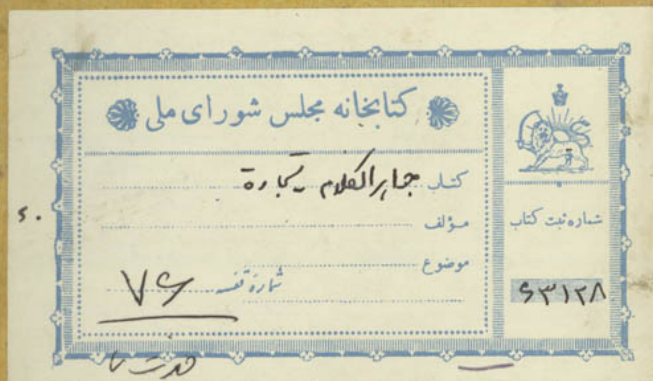 کتابخانه مجلس شورای ملی
کتاب جواهرالکلام تجارة
مؤلف
موضوع
شمارهٔ قفسه ۷۶
شماره ثبت کتاب
۶۳۱۲۸